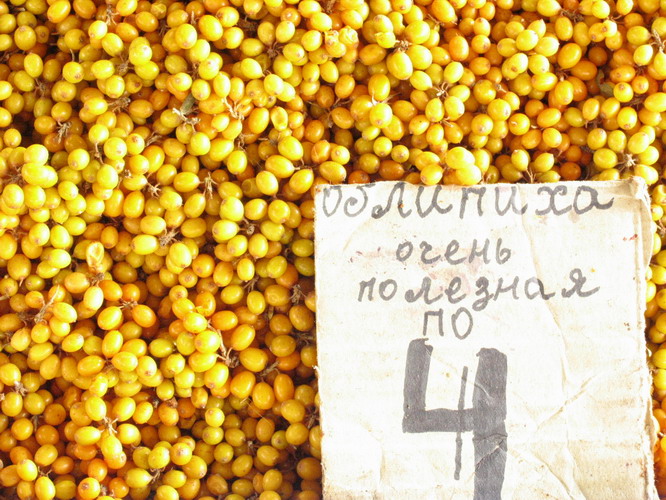 облипиха
очень
полезная
по
4